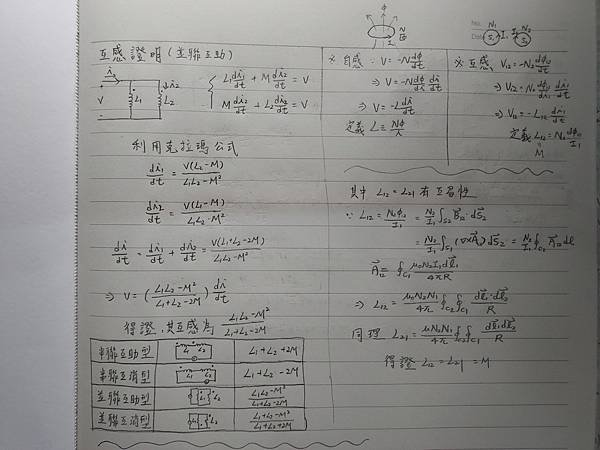 互感證明(並聯互助)
L₁ di₁/dt + M di₂/dt = V
M di₁/dt + L₂ di₂/dt = V
利用克拉瑪公式
di₁/dt = V(L₂-M)/(L₁L₂-M²)
di₂/dt = V(L₁-M)/(L₁L₂-M²)
di/dt = di₁/dt + di₂/dt = V(L₁+L₂-2M)/(L₁L₂-M²)
⇒ V = ((L₁L₂-M²)/(L₁+L₂-2M)) di/dt
得證,其互感為 (L₁L₂-M²)/(L₁+L₂-2M)
串聯互助型 L₁ L₂ L₁+L₂+2M
串聯互消型 L₁ L₂ L₁+L₂-2M
並聯互助型 L₁ L₂ (L₁L₂-M²)/(L₁+L₂-2M)
並聯互消型 (L₁+L₂-M²)/(L₁+L₂+2M)
φ
N匝
I
※自感: V=-N dφ/dt
⇒ V=-N dφ/di di/dt
⇒ V=-L di/dt
定義 L≡Nφ/i
No.
Date
N₁ I₁ I₂ N₂
S₁ S₂
※互感、V₁₂=-N₂ dφ₁₂/dt
⇒ V₁₂=-N₂ dφ₁₂/di₁ di₁/dt
⇒ V₁₂=-L₁₂ di₁/dt
定義 L₁₂=N₂ dφ₁₂/I₁
M
其中 L₁₂=L₂₁ 有互易性
∵ L₁₂ = N₂φ₁₂/I₁ = N₂/I₁ ∫S₂ B⃗₁₂·dS⃗₂
= N₂/I₁ ∫S₂ (∇×A⃗)·dS⃗₂ = N₂/I₁ ∮C₂ A⃗₁₂ dl
A⃗₁₂ = ∮C₁ μ₀N₁I₁dl⃗₁/4πR
⇒ L₁₂ = μ₀N₂N₁/4π ∮C₂∮C₁ dl⃗₁·dl⃗₂/R
同理 L₂₁ = μ₀N₂N₁/4π ∮∮C₁ dl⃗₁dl⃗₂/R
得證 L₁₂=L₂₁ =M